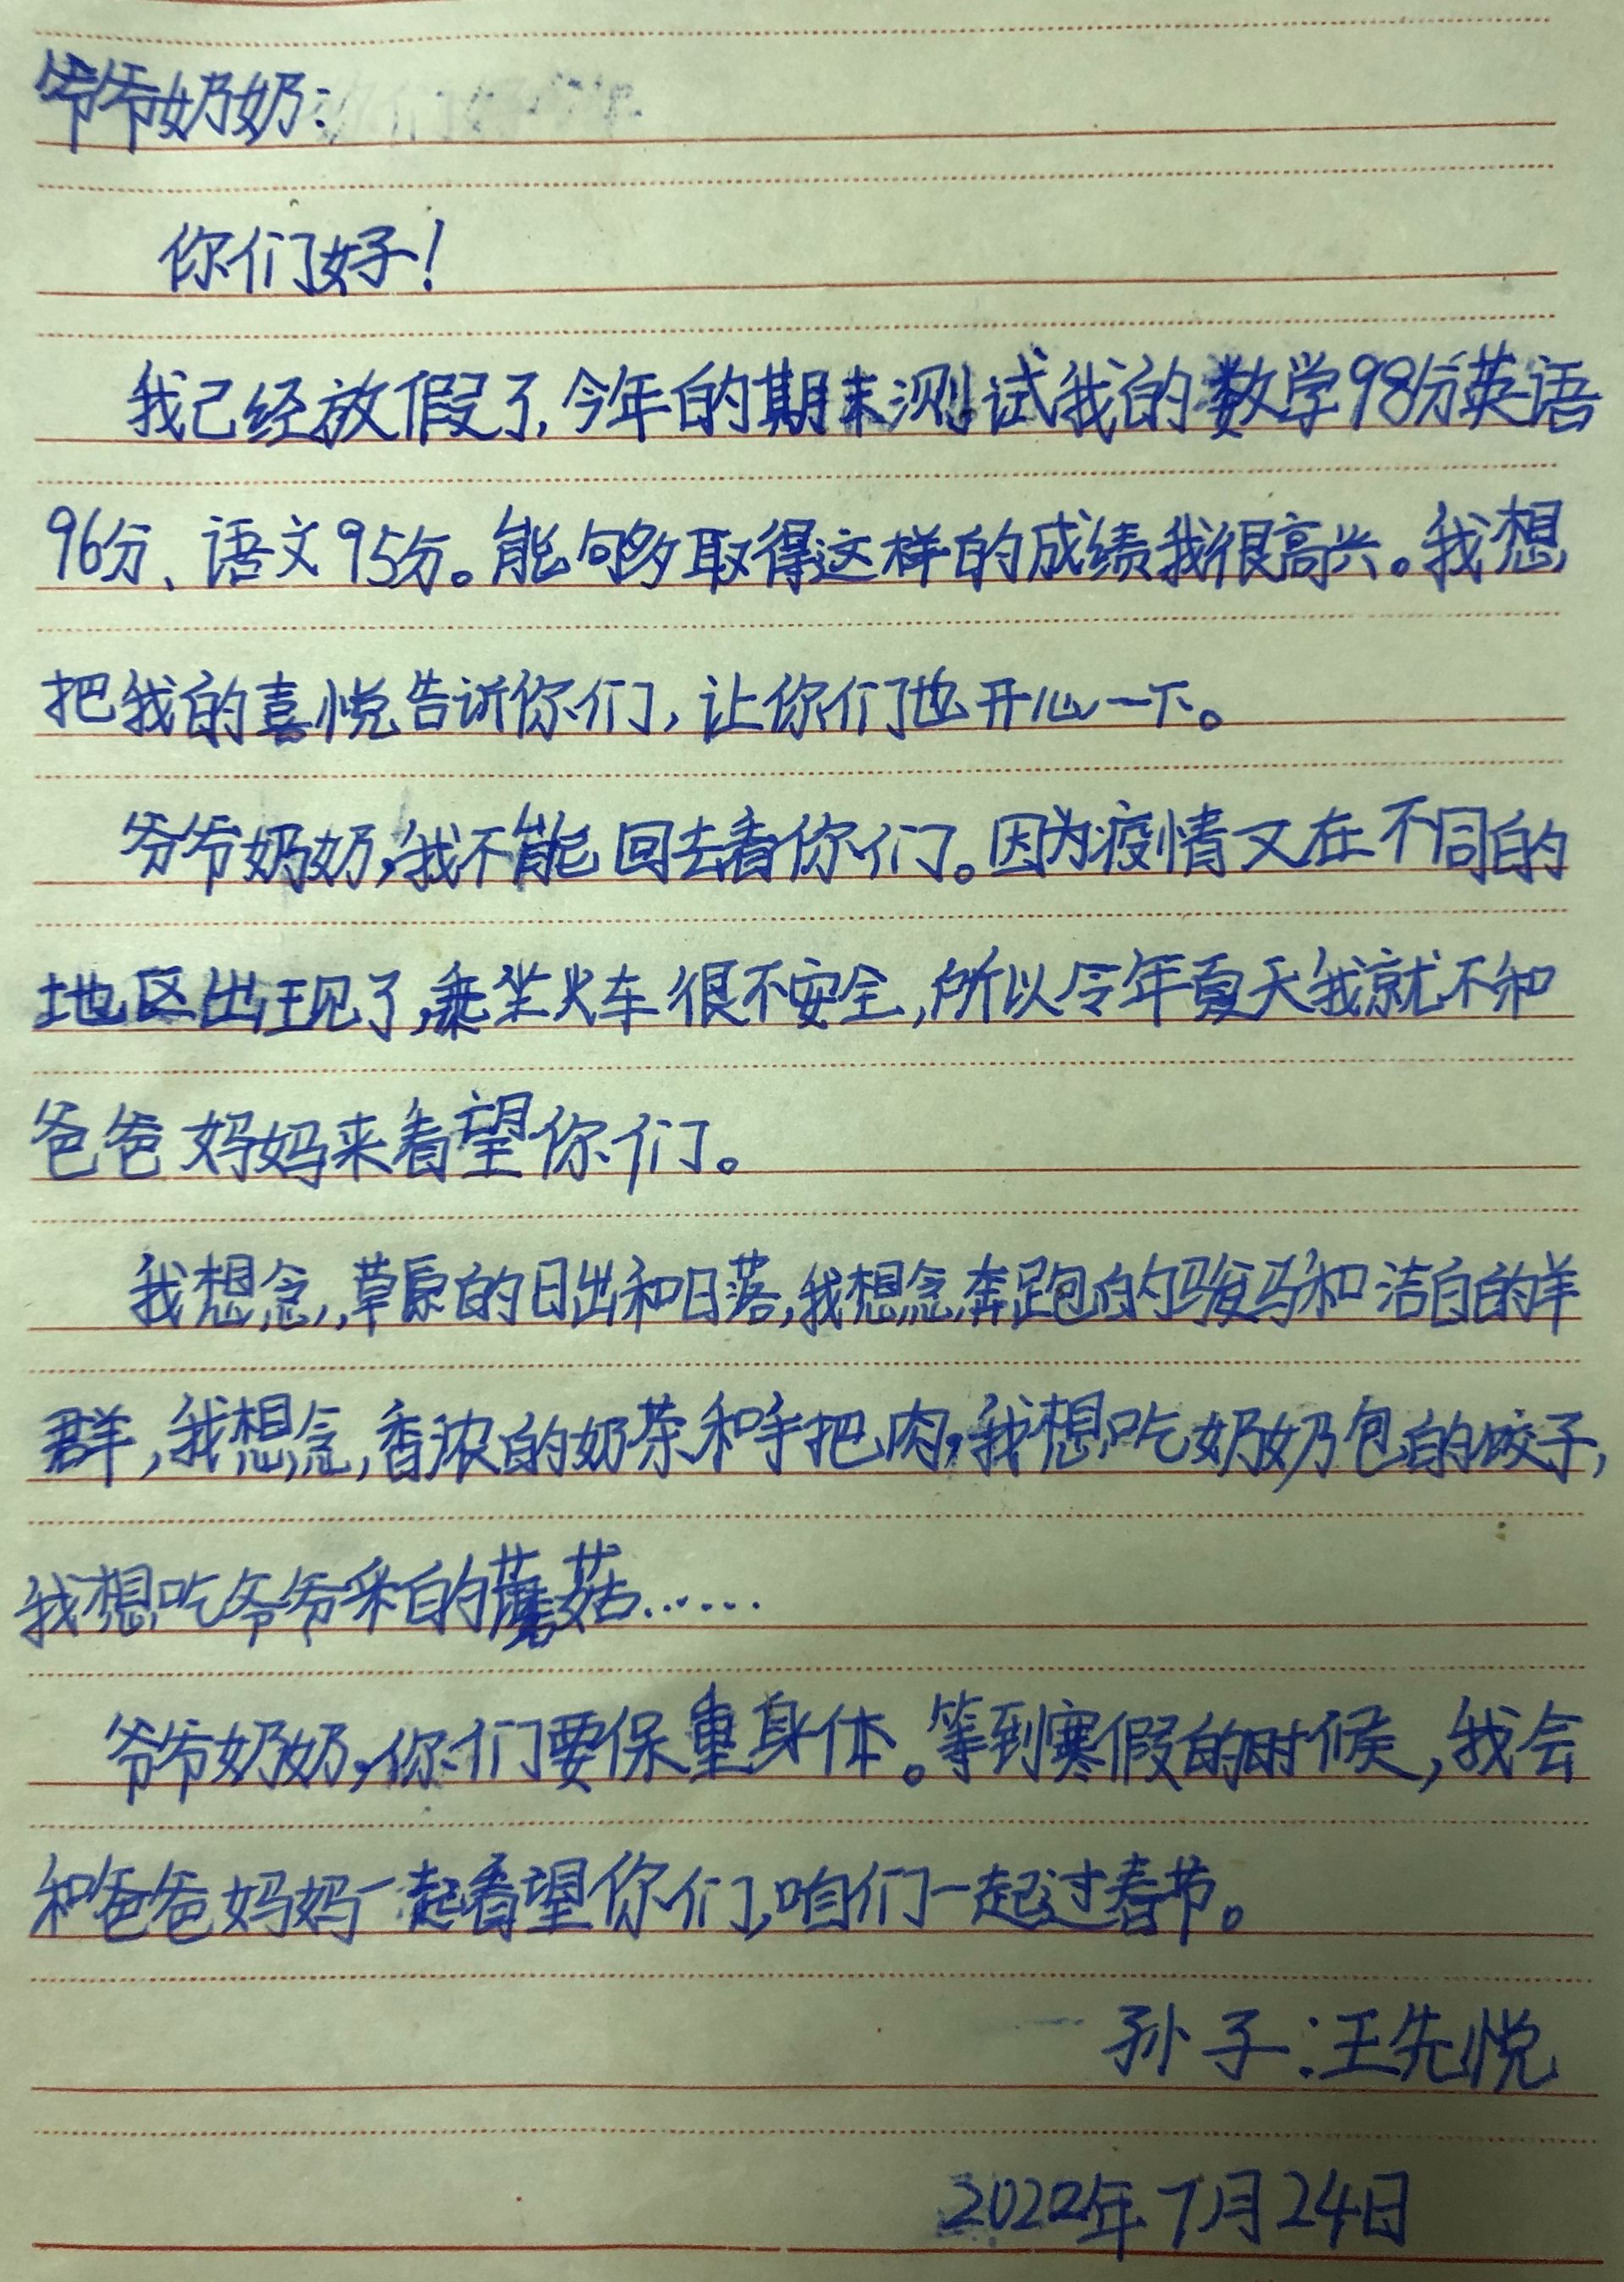 爷爷奶奶:
你们好!
我己经放假了,今年的期末测试我的数学98分英语
96分、语文95分。能够取得这样的成绩我很高兴。我想
把我的喜悦告诉你们,让你们也开心一下。
爷爷奶奶,我不能回去看你们。因为疫情又在不同的
地区出现了,乘坐火车很不安全,所以今年夏天我就不和
爸爸妈妈来看望你们。
我想念,草原的日出和日落,我想念奔跑的骏马和洁白的羊
群,我想念,香浓的奶茶和手把肉,我想吃奶奶包的饺子,
我想吃爷爷采的蘑菇……
爷爷奶奶,你们要保重身体。等到寒假的时候,我会
和爸爸妈妈一起看望你们,咱们一起过春节。
孙子:王先悦
2022年7月24日